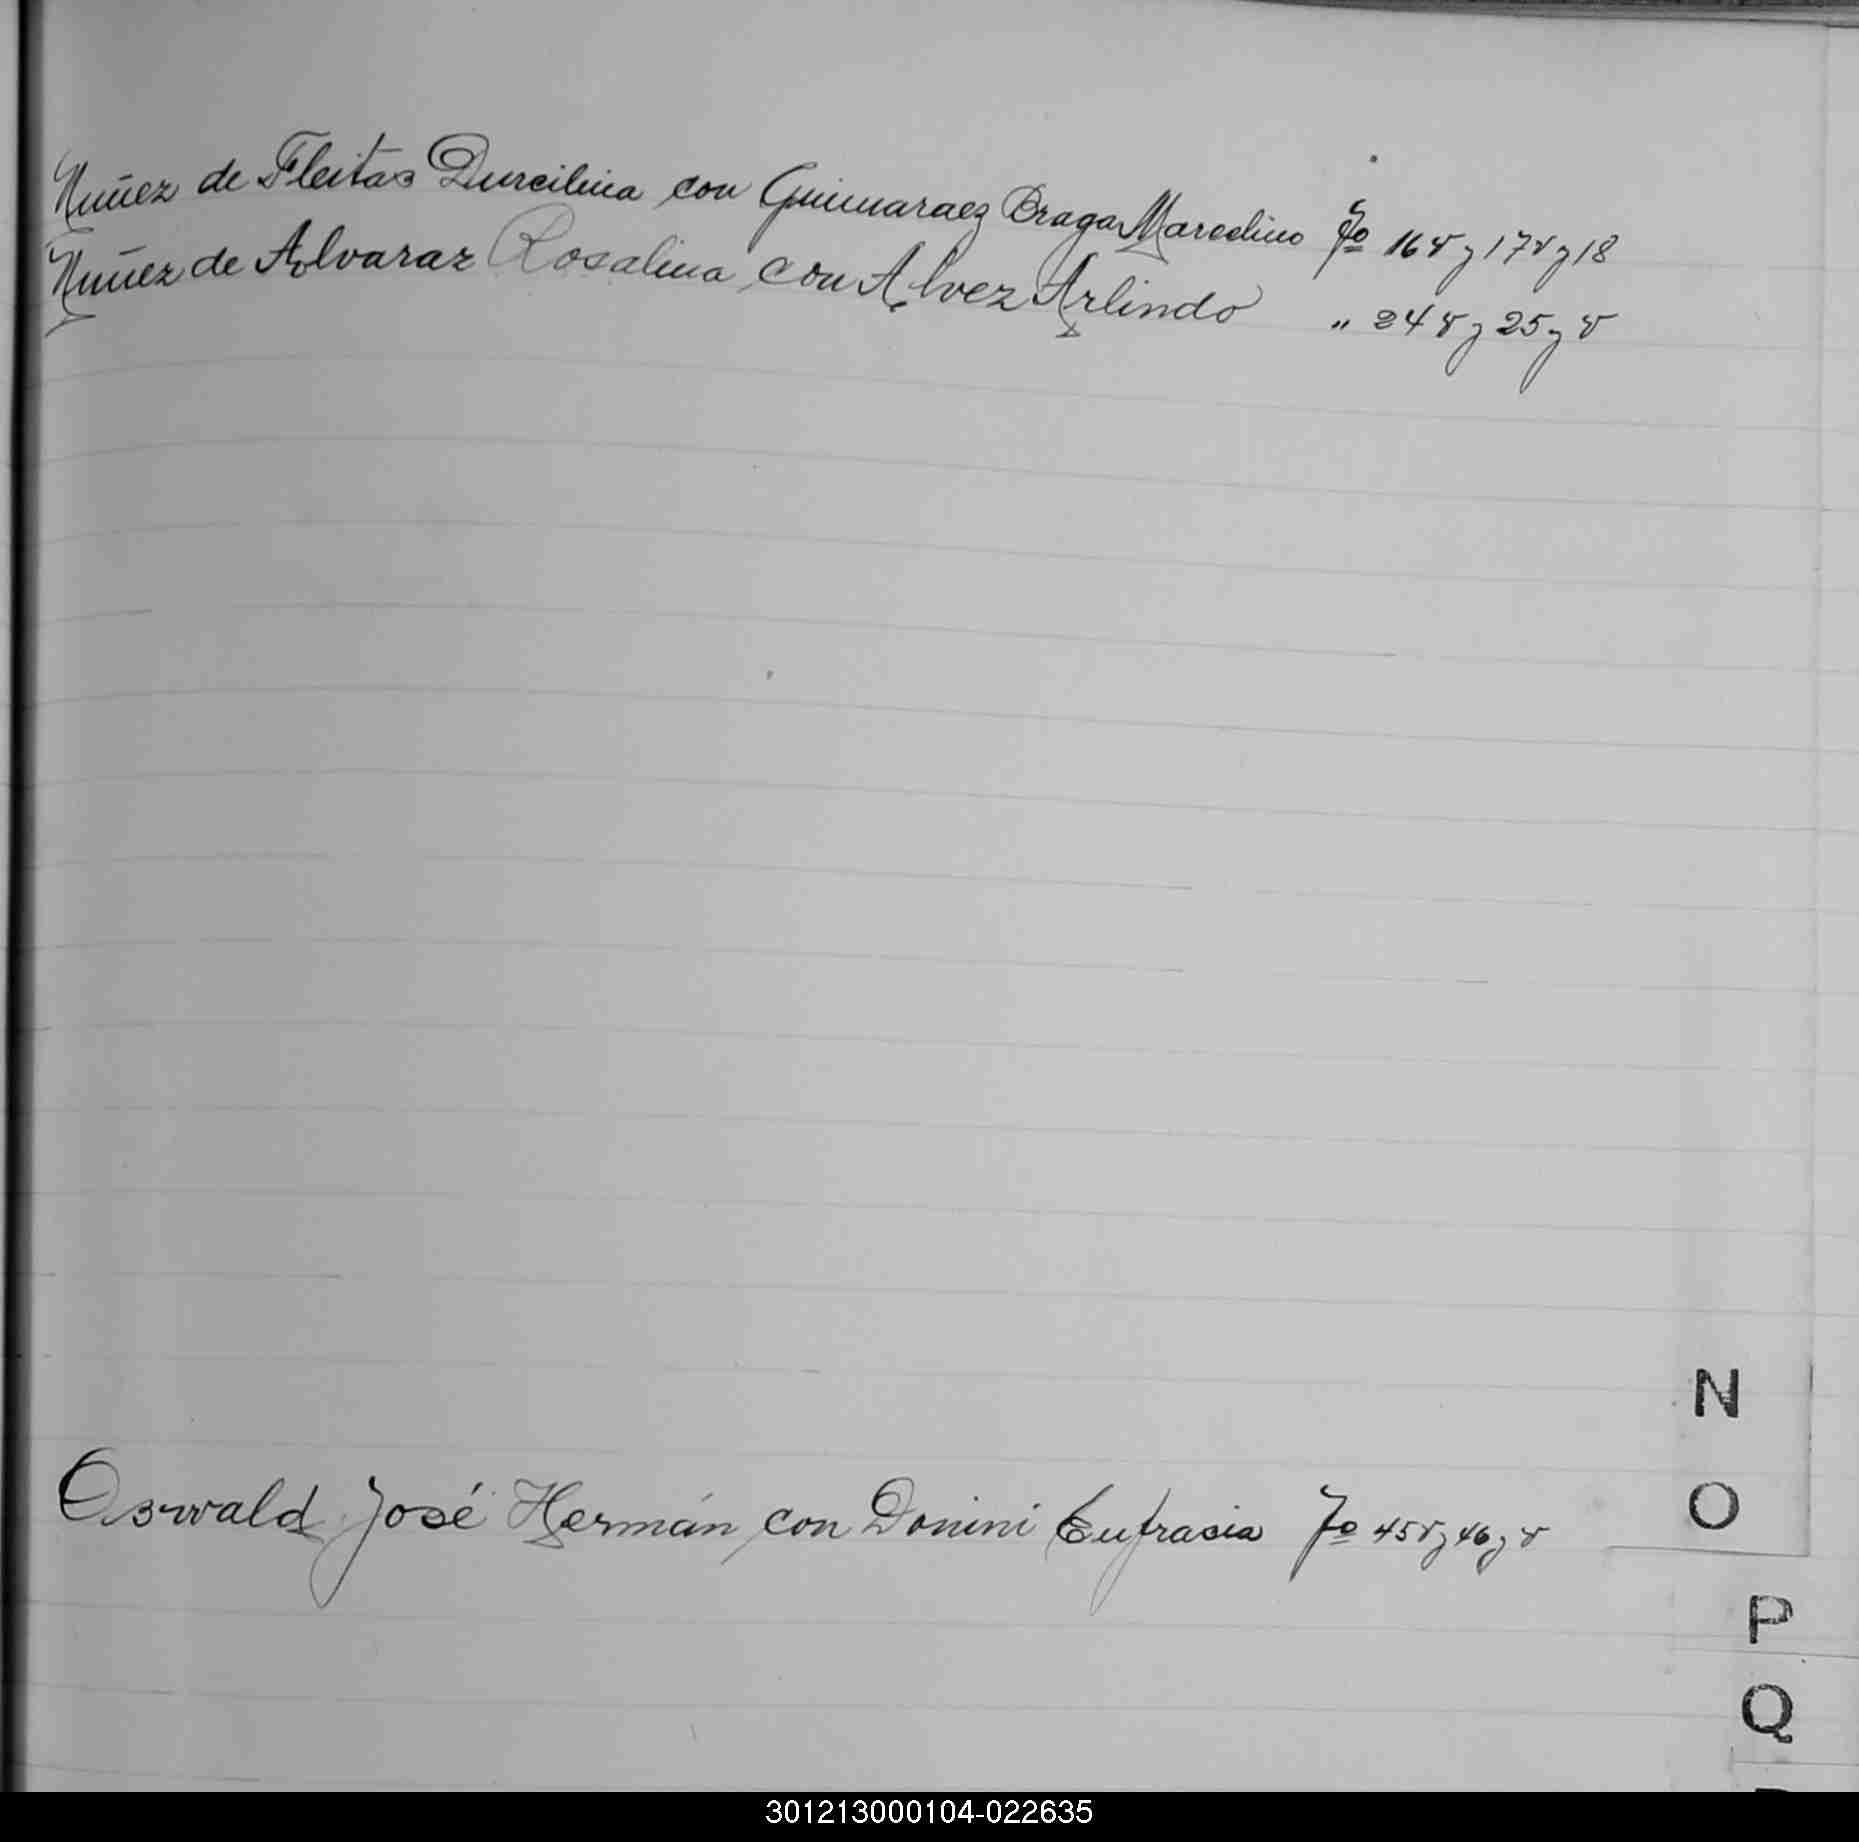 Nuñez de Fleitas Durcilina con Guimaraez Braga Marcelino Fo 16 v y 17 v y 18
Nuñez de Alvaraz Rosalina con Alvez Arlindo " 24 v y 25 y v
N
Oswald José Hermán con Donini Eufrasia Fo 45 v y 46 y v
O
P
Q
301213000104-022635